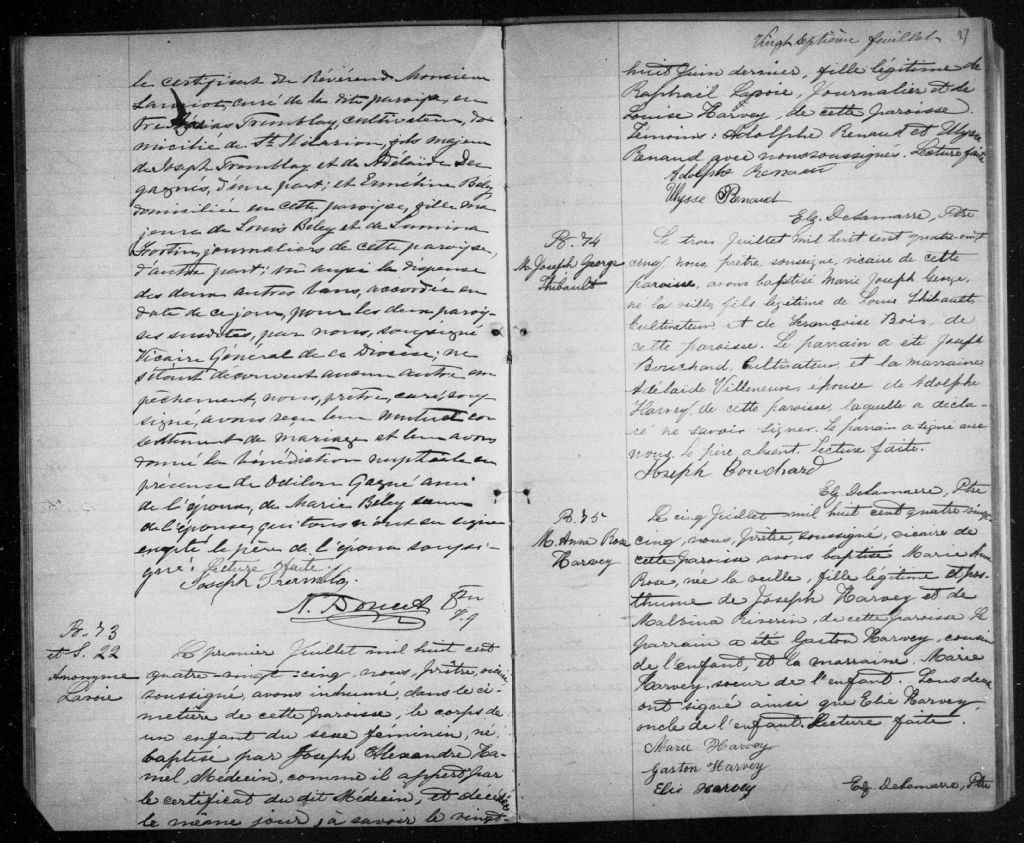 le certificat du Révérend Monsieur
curé de la dite paroisse, en
Tremblay, cultivateur, do
micilié de St Hilarion, fils majeur
de Joseph Tremblay et de Adélaide De
gagnés, d'une part; et Emméline Bély
domiciliée en cette paroisse, fille ma
jeure de Louis Bély et de Lumina
Fortin, journaliers de cette paroisse,
d'autre part; vu aussi la dispense
des deux autres bans, accordée en
date de ce jour, pour les deux parois-
ses susdites, par nous, soussigné
Vicaire Général de ce Diocèse; ne
s'étant découvert aucun autre em
pêchement, nous, prêtre, curé, sous
signé, avons reçu leur mutuel con
sentement de mariage et leur avons
donné la bénédiction nuptiale en
présence de Odilon Gagné ami
de l'époux, de Marie Bély soeur
de l'épouse, qui tous n'ont su signer
excepté le père de l'époux soussi-
gné. Lecture faite.
Joseph Trembla.
N. Doucet Ptre
V.g
B. 73
et S. 22
Anonyme
Lavoie
Le premier Juillet mil huit cent
quatre-vingt-cinq, nous, prêtre, vicaire
soussigné, avons inhumé, dans le ci-
metière de cette paroisse, le corps de
un enfant du sexe féminin, né,
baptisé par Joseph Alexandre Ha-
mel, Médecin, comme il appert par
le certificat du dit Médecin, et décédé
le même jour, à savoir le vingt-
Vingt septième feuillet 27
huit Juin dernier, fille légitime de
Raphaël Lavoie, Journalier et de
Louise Harvey, de cette paroisse
Témoins: Adolphe Renaud et Ulysse
Renaud avec nous soussignés. Lecture faite
Adolphe Renaud
Ulysse Renaud
Elz. DeLamarre, Ptre
B. 74
M. Joseph George
Thibault
Le trois Juillet mil huit cent quatre-vingt
cinq, nous, prêtre, soussigné, vicaire de cette
paroisse, avons baptisé Marie Joseph George,
né la veille, fils légitime de Louis Thibault
Cultivateur et de Françoise Bois, de
cette paroisse. Le parrain a été Joseph
Bouchard, Cultivateur, et la marraine
Adélaide Villeneuve, épouse de Adolphe
Harvey, de cette paroisse, laquelle a décla-
ré ne savoir signer. Le parrain a signé avec
nous. Le père absent. Lecture faite.
Joseph Bouchard
Elz. DeLamarre, Ptre
B. 75
M. Anna Rose
Harvey
Le cinq Juillet mil huit cent quatre vingt
cinq, nous, prêtre, soussigné, vicaire de
cette paroisse avons baptisé Marie Anna
Rose, née la veille, fille légitime et pos-
thume de Joseph Harvey et de
Malvina Riverin, de cette paroisse le
parrain a été Gaston Harvey, cousin
de l'enfant, et la marraine, Marie
Harvey, soeur de l'enfant. Tous deux
ont signé ainsi que Elie Harvey
oncle de l'enfant. Lecture faite.
Marie Harvey
Gaston Harvey
Elie Harvey
Elz. DeLamarre, Ptre